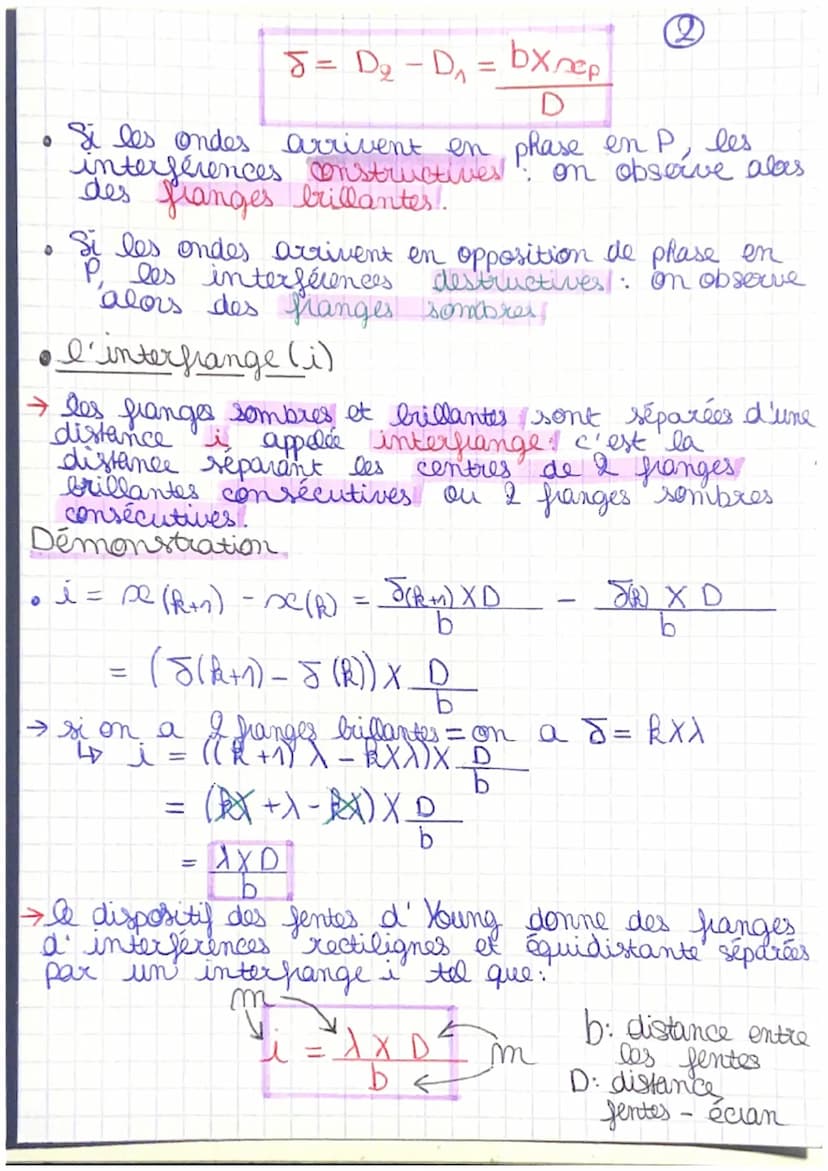 ②
δ = D₂ - D₁ = b×xp / D
• Si les ondes arrivent en phase en P, les
interférences constructives : on observe alors
des franges brillantes.
• Si les ondes arrivent en opposition de phase en
P, les interférences destructives : on observe
alors des franges sombres
• l'interfrange (i)
→ les franges sombres et brillantes sont séparées d'une
distance i appelée interfrange : c'est la
distance séparant les centres de 2 franges
brillantes consécutives ou 2 franges sombres
consécutives.
Démonstration
• i = x(k+1) - x(k) = δ(k+1) × D / b - δ(k) × D / b
= (δ(k+1) - δ(k)) × D / b
→ si on a 2 franges brillantes = on a δ = k×λ
↳ i = ((k+1) λ - k×λ) × D / b
= (kλ + λ - kλ) × D / b
= λ×D / b
→ le dispositif des fentes d'Young donne des franges
d'interférences rectilignes et équidistante séparées
par un interfrange i tel que :
m
i = λ × D / b
m
b : distance entre
les fentes
D : distance
fentes - écran